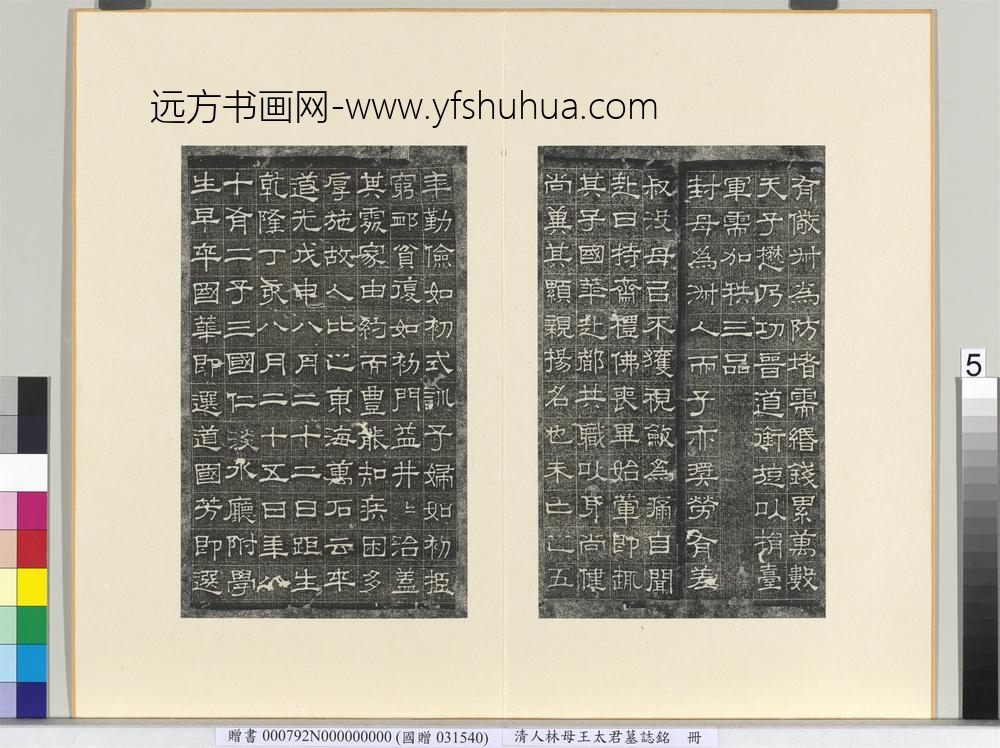 远方书画网-www.yfshuhua.com
有儆為防堵需緡錢累萬數
天子懋乃功晉道銜旋以捐臺
軍需加秩三品
封母為淑人而子亦獎勞有差
叔没母㠯不獲視斂為痛自聞
赴日持齋禮佛喪畢始葷即輒
其子國華赴都共職以身尚健
尚冀其顯親揚名也未亡五
年勤儉如初式訓子婦如初
窮邺貧復如初門益井治蓋
其處家由約而豊能知疾困多
厚施故人比之東海萬石云卒
道光戊申八月二十二日距生
乾隆丁亥八月二十五日年八
十有二子三國仁淡水廳附學
生早卒國華即選道國芳即選
5
贈書 000792N000000000 (國贈 031540) 清人林母王太君墓誌銘 冊